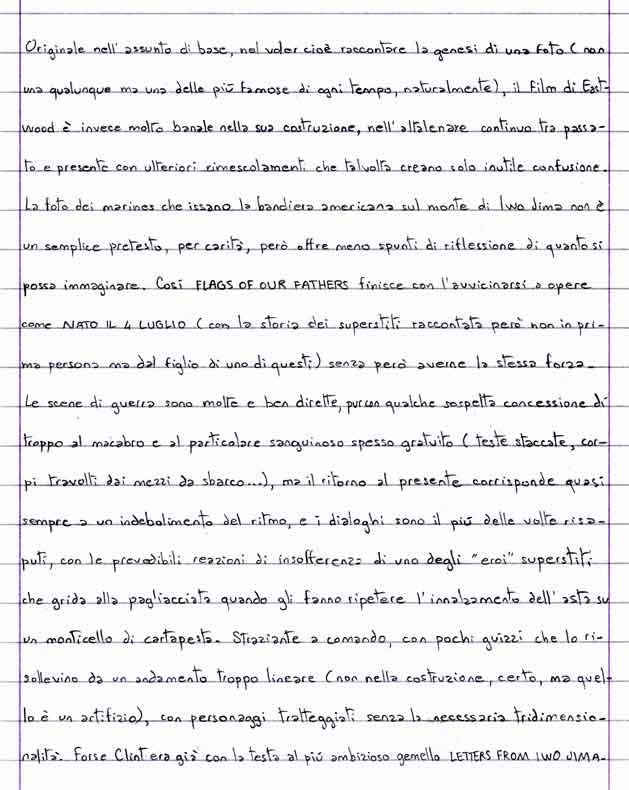 Originale nell'assunto di base, nel voler cioè raccontare la genesi di una foto (non
una qualunque ma una delle più famose di ogni tempo, naturalmente), il film di East-
wood è invece molto banale nella sua costruzione, nell'altalenare continuo tra passa-
to e presente con ulteriori rimescolamenti che talvolta creano solo inutile confusione.
La foto dei marines che issano la bandiera americana sul monte di Iwo Jima non è
un semplice pretesto, per carità, però offre meno spunti di riflessione di quanto si
possa immaginare. Così FLAGS OF OUR FATHERS finisce con l'avvicinarsi a opere
come NATO IL 4 LUGLIO (con la storia dei superstiti raccontata però non in pri-
ma persona ma dal figlio di uno di questi) senza però averne la stessa forza.
Le scene di guerra sono molte e ben dirette, pur con qualche sospetta concessione di
troppo al macabro e al particolare sanguinoso spesso gratuito (teste staccate, cor-
pi travolti dai mezzi da sbarco...), ma il ritorno al presente corrisponde quasi
sempre a un indebolimento del ritmo, e i dialoghi sono il più delle volte risa-
puti, con le prevedibili reazioni di insofferenza di uno degli "eroi" superstiti
che grida alla pagliacciata quando gli fanno ripetere l'innalzamento dell'asta su
un monticello di cartapesta. Straziante a comando, con pochi guizzi che lo ri-
sollevino da un andamento troppo lineare (non nella costruzione, certo, ma quel-
lo è un artifizio), con personaggi tratteggiati senza la necessaria tridimensio-
nalità. Forse Clint era già con la testa al più ambizioso gemello LETTERS FROM IWO JIMA.